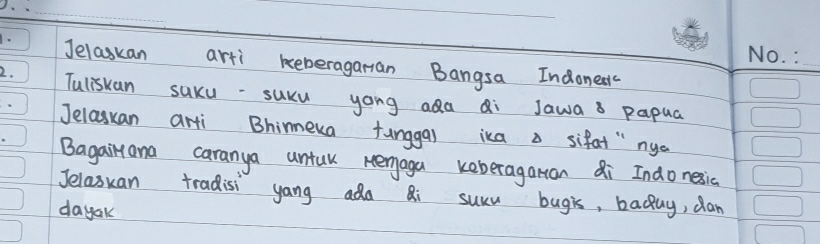 1. Jelaskan arti keberagaman Bangsa Indonesia
2. Tuliskan suku - suku yang ada di Jawa & papua
Jelaskan arti Bhinneka tunggal ika & sifat" nya
Bagaimana caranya untuk menjaga keberagaman di Indonesia
Jelaskan tradisi yang ada di suku bugis, baduy, dan
dayak
No. :